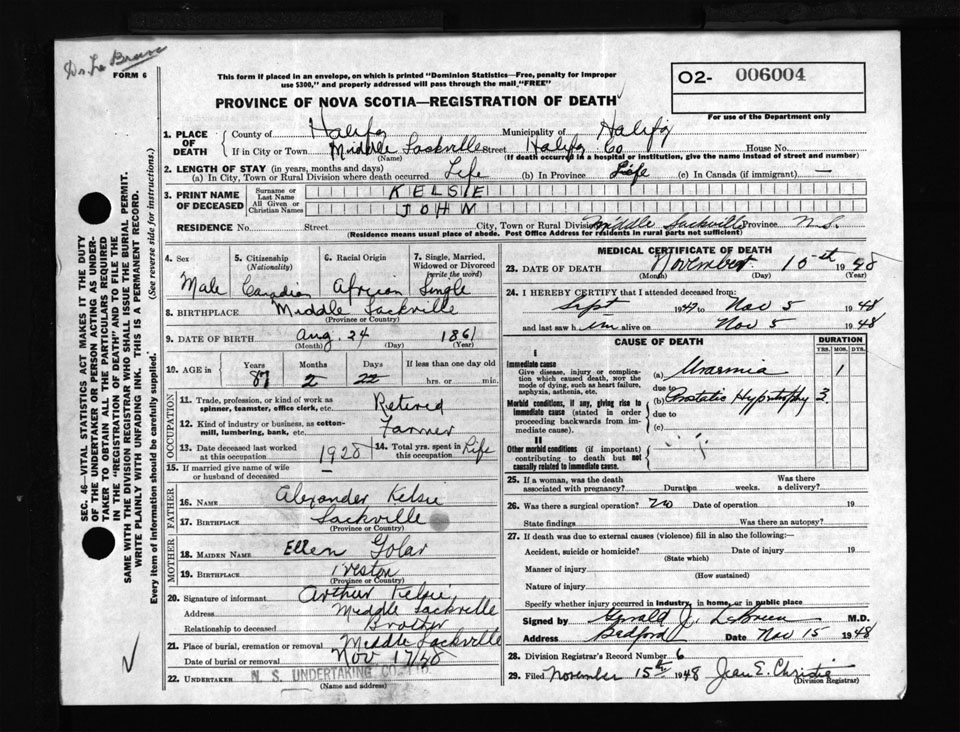 Dr. Le Brun
FORM 6
This form if placed in an envelope, on which is printed "Dominion Statistics—Free, penalty for improper
use $300," and properly addressed will pass through the mail "FREE"
PROVINCE OF NOVA SCOTIA—REGISTRATION OF DEATH
O2- 006004
For use of the Department only
SEC. 46-VITAL STATISTICS ACT MAKES IT THE DUTY
OF THE UNDERTAKER OR PERSON ACTING AS UNDER-
TAKER TO OBTAIN ALL THE PARTICULARS REQUIRED
IN THE "REGISTRATION OF DEATH" AND TO FILE THE
SAME WITH THE DIVISION REGISTRAR WHO SHALL ISSUE THE BURIAL PERMIT.
WRITE PLAINLY WITH UNFADING INK. THIS IS A PERMANENT RECORD.
Every item of information should be carefully supplied. (See reverse side for instructions.)
1. PLACE OF DEATH { County of Halifax Municipality of Halifax
If in City or Town Middle Sackville Street Halifax Co House No.
(Name) (If death occurred in a hospital or institution, give the name instead of street and number)
2. LENGTH OF STAY (in years, months and days)
(a) In City, Town or Rural Division where death occurred Life (b) In Province Life (c) In Canada (if immigrant) —
3. PRINT NAME OF DECEASED { Surname or Last Name KELSIE
All Given or Christian Names JOHN
RESIDENCE No. Street City, Town or Rural Division Middle Sackville Province N.S.
(Residence means usual place of abode. Post Office Address for residents in rural parts not sufficient)
4. Sex 5. Citizenship (Nationality) 6. Racial Origin 7. Single, Married, Widowed or Divorced (write the word)
Male Canadian African Single
8. BIRTHPLACE Middle Sackville
(Province or Country)
9. DATE OF BIRTH Aug. 24 1861
(Month) (Day) (Year)
10. AGE in { Years Months Days If less than one day old
87 2 22 hrs. or min.
OCCUPATION
11. Trade, profession, or kind of work as spinner, teamster, office clerk, etc. Retired
12. Kind of industry or business, as cotton-mill, lumbering, bank, etc. Farmer
13. Date deceased last worked at this occupation 1928 14. Total yrs. spent in this occupation Life
15. If married give name of wife or husband of deceased —
FATHER
16. NAME Alexander Kelsie
17. BIRTHPLACE Sackville
(Province or Country)
MOTHER
18. MAIDEN NAME Ellen Golar
19. BIRTHPLACE Preston
(Province or Country)
20. Signature of informant Arthur Kelsie
Address Middle Sackville
Relationship to deceased Brother
21. Place of burial, cremation or removal Middle Sackville
Date of burial or removal Nov 17/48
22. UNDERTAKER N. S. UNDERTAKING CO. LTD.
(Name and address)
MEDICAL CERTIFICATE OF DEATH
23. DATE OF DEATH November 15th 1948
(Month) (Day) (Year)
24. I HEREBY CERTIFY that I attended deceased from:
Sept 1947 to Nov 5 1948
and last saw him alive on Nov 5 1948
CAUSE OF DEATH DURATION
YRS. MOS. DYS.
I
Immediate cause
Give disease, injury or complication which caused death, NOT the mode of dying, such as heart failure, asphyxia, asthenia, etc.
(a) Uraemia 1
due to
Morbid conditions, if any, giving rise to immediate cause (stated in order proceeding backwards from immediate cause).
(b) Prostatic Hypertrophy 3
due to
(c)
II
Other morbid conditions (if important) contributing to death but not causally related to immediate cause.
25. If a woman, was the death associated with pregnancy? Duration weeks. Was there a delivery?
26. Was there a surgical operation? No Date of operation 19
State findings Was there an autopsy?
27. If death was due to external causes (violence) fill in also the following:—
Accident, suicide or homicide? Date of injury 19
(State which)
Manner of injury
(How sustained)
Nature of injury
Specify whether injury occurred in industry, in home, or in public place
Signed by Gerald J. LeBrun M.D.
Address Bedford Date Nov 15 1948
28. Division Registrar's Record Number 6
29. Filed November 15th 1948 Jean E. Christie
(Division Registrar)